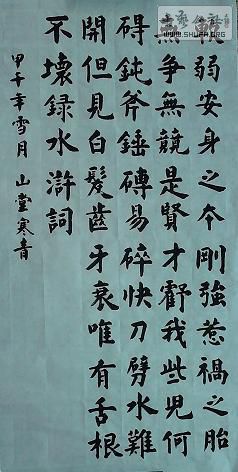 軟弱安身之本剛強惹禍之胎
無争無競是賢才虧我些兒何
碍鈍斧錘磚易碎快刀劈水難
開但見白髮齒牙衰唯有舌根
不壞録水滸詞
甲午年雪月 山堂寒音